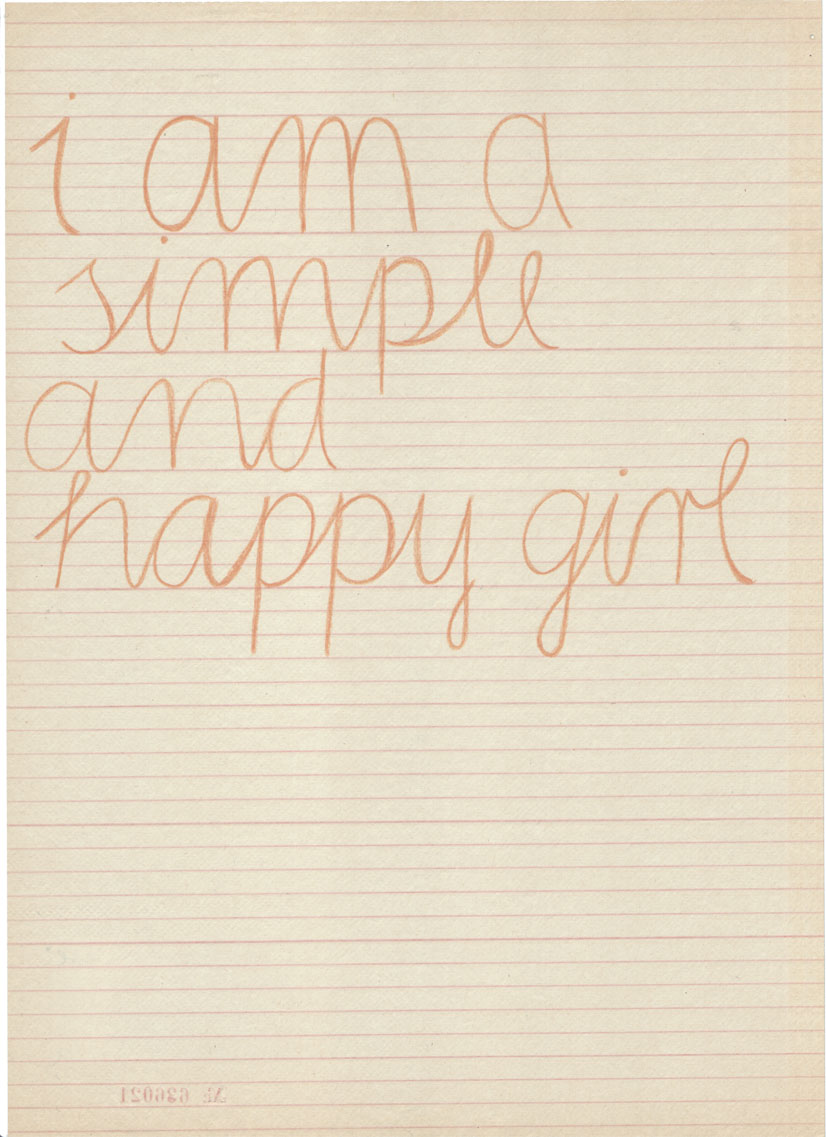 i am a
simple
and
happy girl
№ 636021